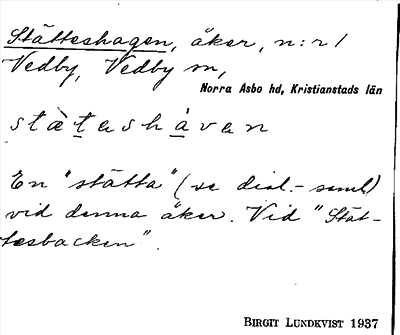 Stätteshagen, åker, n:r 1
Vedby, Vedby sn,
Norra Åsbo hd, Kristianstads län
stätashàvan
En "stätta" (se dial.-saml.)
vid denna åker. Vid "Stät-
tesbacken".
BIRGIT LUNDKVIST 1937